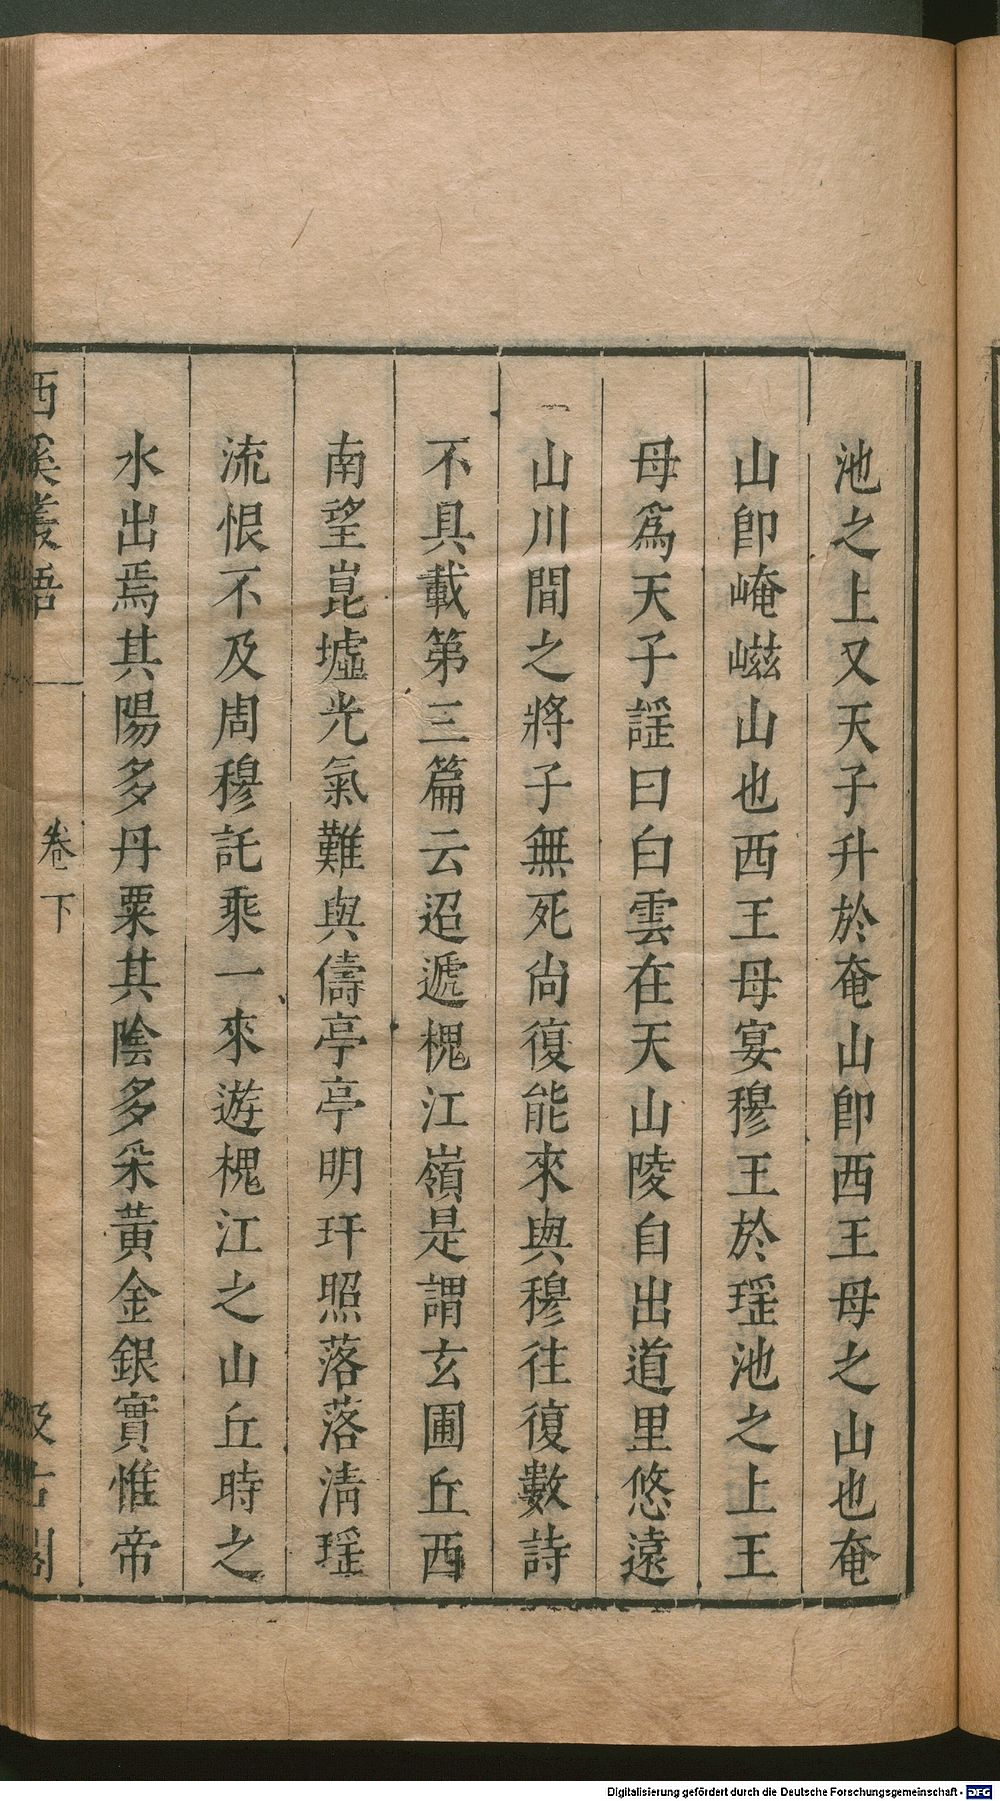 池之上又天子升於奄山卽西王母之山也奄
山卽崦嵫山也西王母宴穆王於瑶池之上王
母爲天子謡曰白雲在天山陵自出道里悠遠
山川間之將子無死尚復能來與穆往復數詩
不具載第三篇云迢遞槐江嶺是謂玄圃丘西
南望崑墟光氣難與儔亭亭明玕照落落淸瑶
流恨不及周穆託乘一來遊槐江之山丘時之
水出焉其陽多丹粟其陰多采黃金銀實惟帝
西溪叢語
卷下
汲古閣
Digitalisierung gefördert durch die Deutsche Forschungsgemeinschaft - DFG